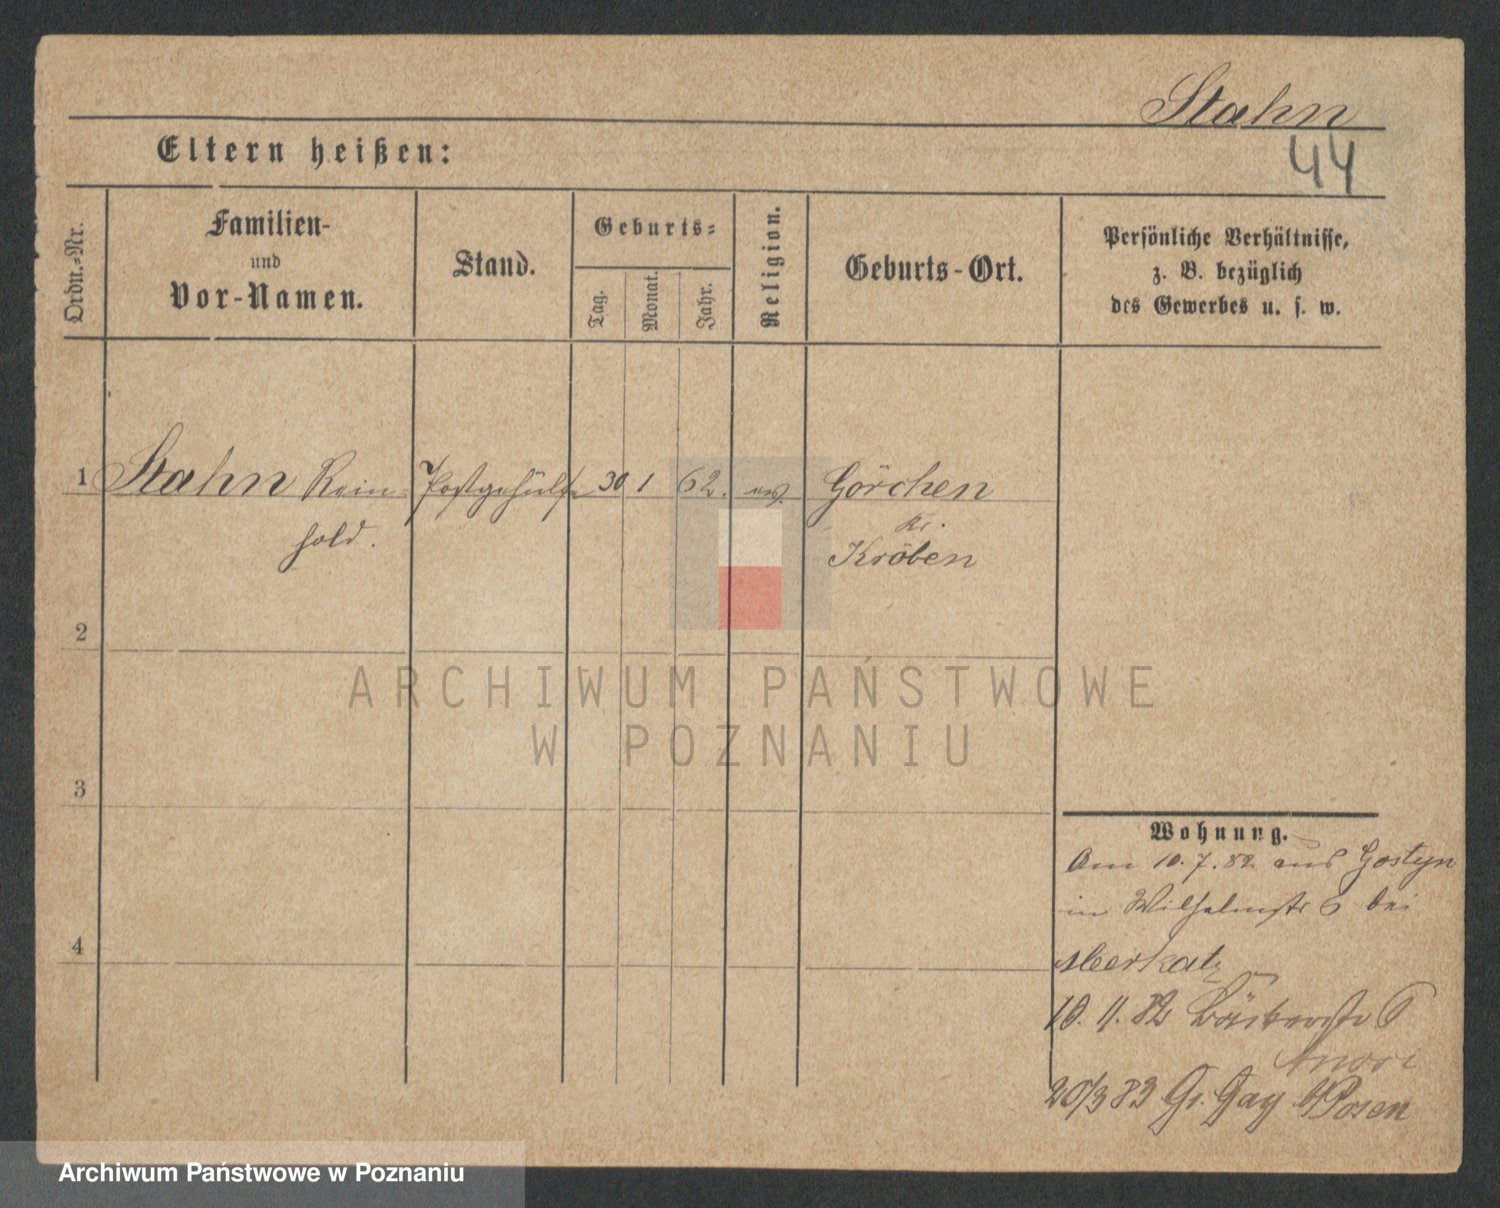 Stahn
44
Eltern heißen:
Ordn.-Nr.
Familien-
und
Vor-Namen.
Stand.
Geburts-
Tag.
Monat.
Jahr.
Religion.
Geburts-Ort.
Persönliche Verhältnisse,
z. B. bezüglich
des Gewerbes u. s. w.
1 Stahn Rein- Postgehülfe 30 1 62. ev. Görchen
hold. Kr.
Kröben
2
ARCHIWUM PAŃSTWOWE
W POZNANIU
3
Wohnung.
Am 10.7.82 aus Gostyn
in Wilhelmstr 6 bei
4
Merkatz
10.11.82 Bäckerstr 6
20/3 83 Gr. Gay b/Posen
Archiwum Państwowe w Poznaniu